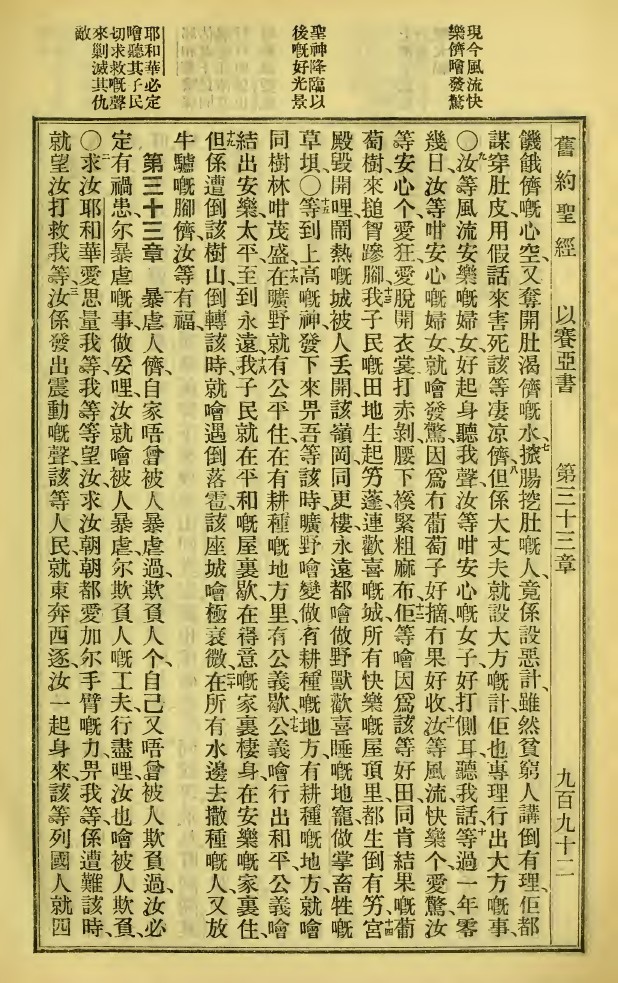 現今風流快
樂儕噲發驚
聖神降臨以
後嘅好光景
耶和華必定
噲聽其子民
切求救嘅聲
來剿滅其仇
敵
舊約聖經 以賽亞書 第三十三章 九百九十二
饑餓儕嘅心空、又奪開肚渴儕嘅水、七㧡腸挖肚嘅人、竟係設惡計、雖然貧窮人講倒有理、佢都
謀穿肚皮用假話來害死該等凄凉儕、八但係大丈夫就設大方嘅計、佢也專理行出大方嘅事、
〇九汝等風流安樂嘅婦女、好起身聽我聲、汝等咁安心嘅女子、好打側耳聽我話、十等過一年零
幾日、汝等咁安心嘅婦女、就噲發驚、因爲冇葡萄子好摘、冇果好收、十一汝等風流快樂个愛驚、汝
等安心个愛狂、愛脫開衣裳打赤剝、腰下𥚃緊粗麻布、十二佢等噲因爲該等好田、同肯結果嘅葡
萄樹、來搥智蹘腳、十三我子民嘅田地生起竻蓬、連歡喜嘅城、所有快樂嘅屋頂里、都生倒有竻、十四宮
殿毀開哩、鬧熱嘅城被人丟開、該嶺岡同更樓、永遠都噲做野獸歡喜睡嘅地竉、做掌畜牲嘅
草埧、〇十五等到上高嘅神發下來畀吾等、該時曠野噲變做有耕種嘅地方、有耕種嘅地方、就噲
同樹林咁茂盛、十六在曠野就有公平住、在有耕種嘅地方里、有公義歇、十七公義噲行出和平、公義噲
結出安樂太平、至到永遠、十八我子民就在平和嘅屋裏歇、在得意嘅家裏棲身、在安樂嘅家裏住、
十九但係遭倒該樹山倒轉該時、就噲遇倒落雹、該座城噲極衰微、二十在所有水邊去撒種嘅人、又放
牛驢嘅腳儕、汝等有福、
第三十三章 一暴虐人儕、自家唔曾被人暴虐過、欺負人个、自己又唔曾被人欺負過、汝必
定有禍患、尔暴虐嘅事做妥哩、汝就噲被人暴虐、尔欺負人嘅工夫行盡哩、汝也噲被人欺負、
〇二求汝耶和華愛思量我等、我等等望汝、求汝朝朝都愛加尔手臂嘅力畀我等、係遭難該時、
就望汝打救我等、三汝係發出震動嘅聲、該等人民就東奔西逐、汝一起身來、該等列國人就四